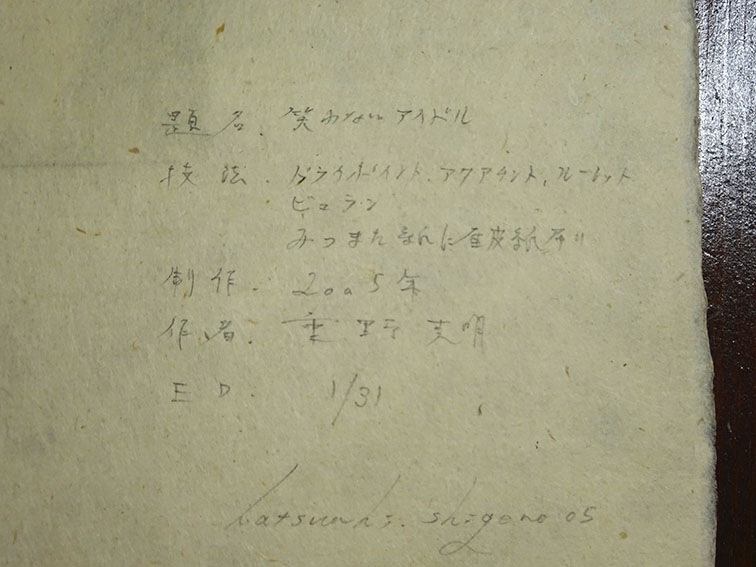 題名. 笑わないアイドル
技法. ドライポイント. アクアチント, ルーレット
ビュラン
みつまた紙に雁皮紙刷り
制作. 2005年
作者. 重野克明
ED. 1/31
Katsuaki. Shigeno 05